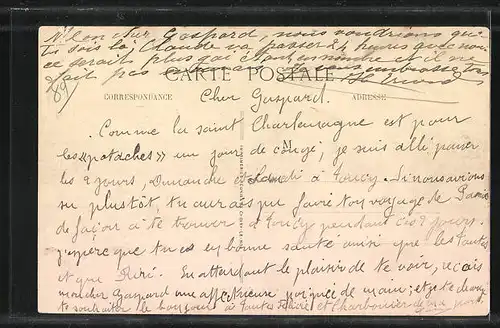 Mon cher Gaspard, nous voudrions que
tu sois là, Claude va passer 24 heures avec nous
ce serait plus qui et il ne
fait pas
CARTE POSTALE
CORRESPONDANCE
ADRESSE
89
Cher Gaspard.
Comme la saint Charlemagne est pour
les «potaches» un jour de congé, je suis allé passer
les 2 jours, Dimanche et Lundi à Toucy. Si nous avions
su plustôt, tu aurais pu faire ton voyage de Paris
de façon à te trouver à Toucy pendant ces 2 jours.
J'espère que tu es en bonne santé ainsi que les tantes
et que Riri. En attendant le plaisir de te voir, reçois
mon cher Gaspard une affectueuse poignée de main; et je te charge
de souhaiter le bonjour à tantes et Charbonnier de ma part.